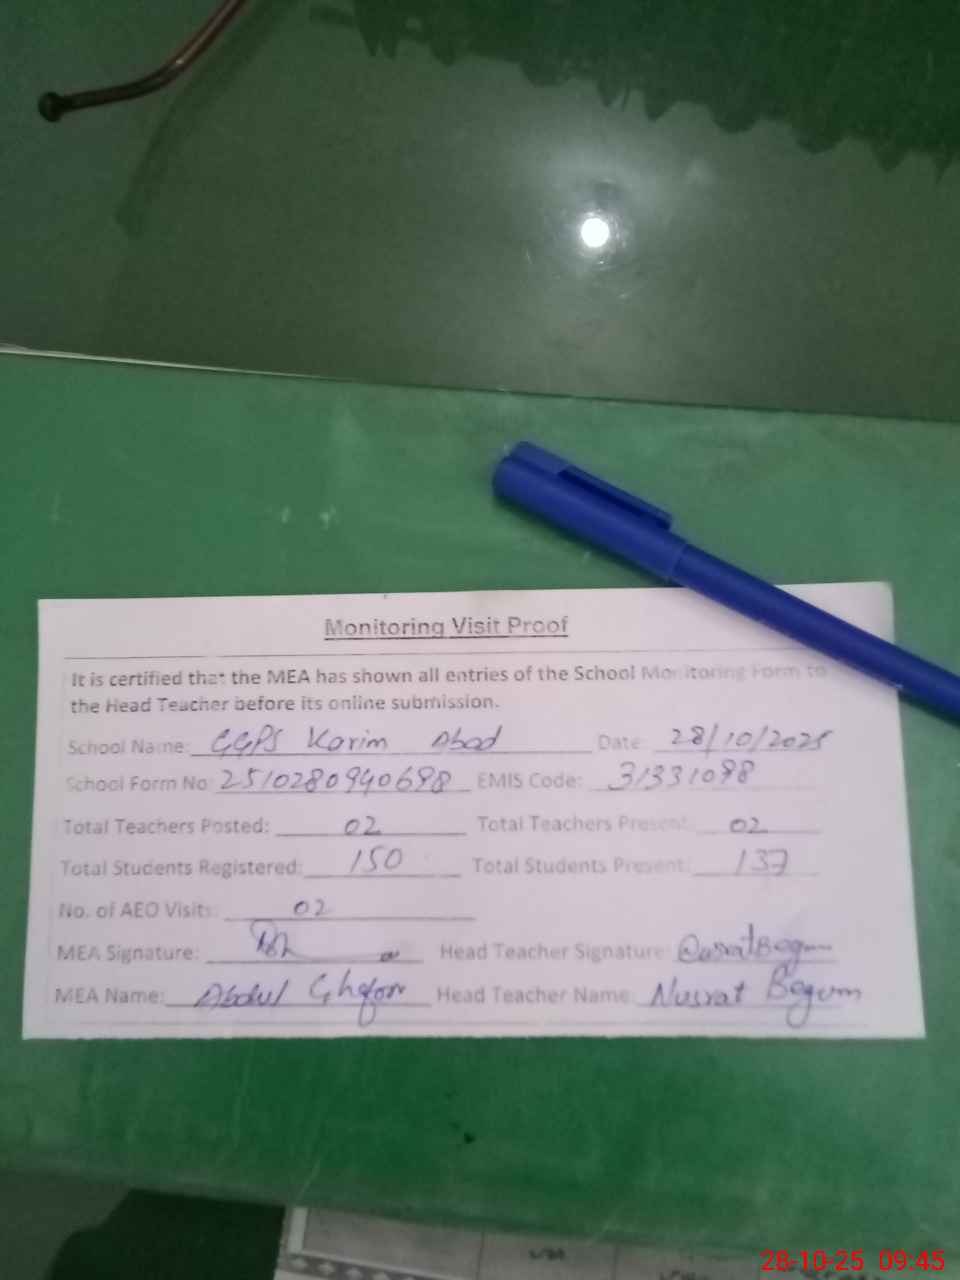 Monitoring Visit Proof
It is certified that the MEA has shown all entries of the School Monitoring Form to
the Head Teacher before its online submission.
School Name: GGPS Karim Abad Date: 28/10/2025
School Form No: 2510280940698 EMIS Code: 31331098
Total Teachers Posted: 02 Total Teachers Present: 02
Total Students Registered: 150 Total Students Present: 137
No. of AEO Visits: 02
MEA Signature: Head Teacher Signature:
MEA Name: Abdul Ghafor Head Teacher Name: Nusrat Begum
28-10-25 09:45